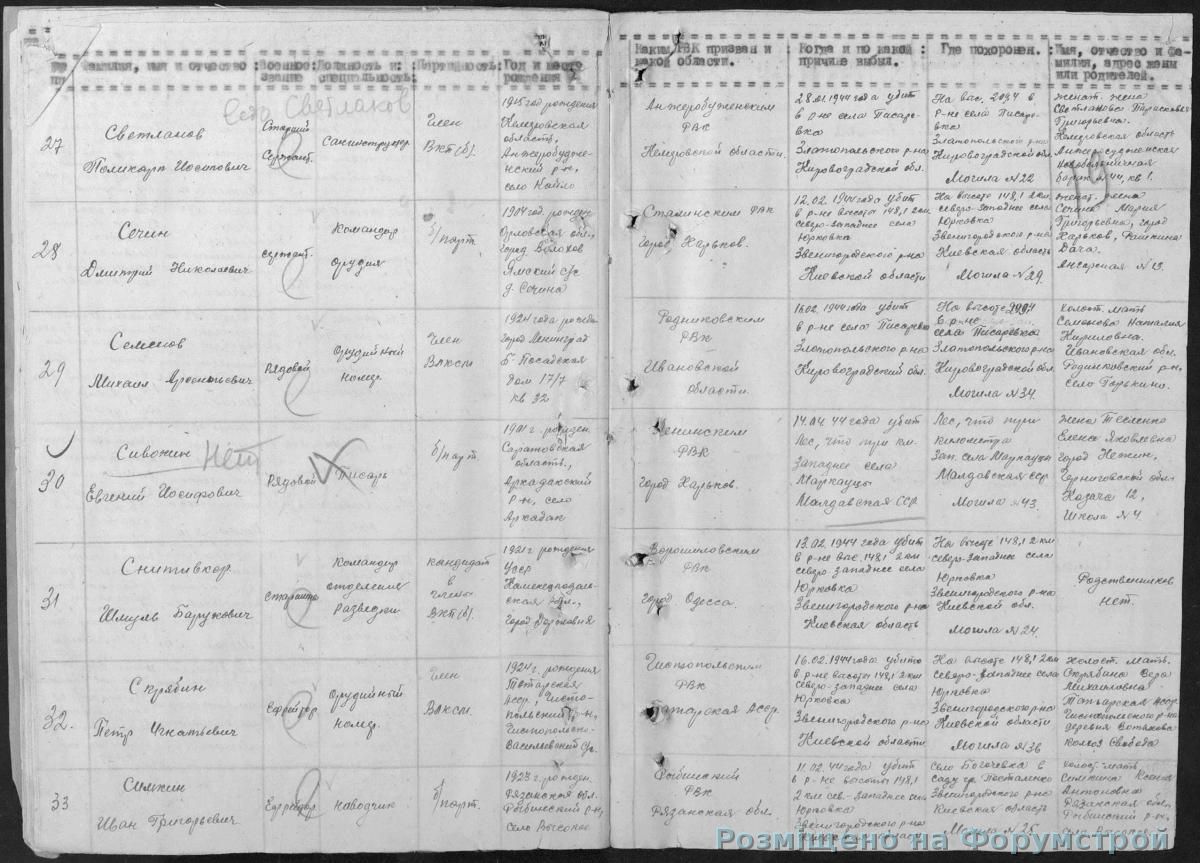 Фамилия, имя и отчество
Военное звание
Должность и специальность
Партийность
Год и место рождения
Каким РВК призван и какой области.
Когда и по какой причине выбыл.
Где похоронен.
Имя, отчество и фамилия, адрес жены или родителей.
Светлаков
27
Светланов
Поликарп Иосипович
Старший
Сержант.
Санинструктор
Член
ВКП(б).
1915 год рождения
Кемеровская
область,
Анжеробуженским
РВК
Кемеровской области.
28.01.1944 года убит
в р-не села Писаревка
Златопольского р-на
Кировоградской обл.
На выс. 209,4 в
р-не села Писаревка
Златопольского р-на
Кировоградской обл.
Могила №22
женат. жена
Григорьевна.
Кемеровская область
барак №44, кв 1.
28
Сечин
Дмитрий Николаевич
сержант.
Командир
орудия
б/парт.
1904 год. рожден.
Орловская обл.,
город Болохов
Ямский с/с
д. Сечина
Сталинским РВК
город Харьков.
12.02.1944 года убит
в р-не высоты 148,1 2 км
северо-западнее села
Юрковка
Звенигородского р-на
Киевской области
На высоте 148,1 2 км.
северо-западнее села
Юрковка
Звенигородского р-на
Киевской область
Могила №29.
женат. жена
Сечина Мария
Григорьевна, город
Харьков,
Дача.
29
Семенов
Михаил Арсентьевич
Рядовой
Орудийный
номер.
Член
ВЛКСМ
1924 года рожден
город Ленинград
Б-Посадская
дом 17/7
кв 32
Родниковским
РВК
Ивановской
области.
16.02.1944 года убит
в р-не села Писаревка
Златопольского р-на
Кировоградский обл.
На высоте 209,4
в р-не
села Писаревка
Златопольского р-на
Кировоградской обл.
Могила №34.
холост. мать
Семенова Наталия
Кириловна.
Ивановская обл.
Родниковский р-н,
село Горкино.
30
Сивожин Нет
Евгений Иосифович
Рядовой
Писарь
б/парт.
1901 г. рожден.
Саратовская
область,
Аркадакский
р-н, село
Аркадак
Ленинским
РВК
город Харьков.
14.04.44 года убит
Лес, что три км.
Западнее села
Маркауцы
Малдавская ССР
Лес, что три
километра
Зап. села Маркауцы
Малдавская ССР
Могила №43.
Жена Тесленко
Елена Яковлевна
город Нежин,
Черниговской обл.
Казача 12,
Школа №4.
31
Снитивкер
Шмуль Барукович
старшина
Командир
отделения
разведки
кандидат
в
члены
ВКП(б).
1921 г рождения
УССР
Ворошиловским
РВК
город Одесса.
13.02.1944 года убит
в р-не выс. 148,1 2 км
северо-западнее села
Юрковка
Звенигородского р-на
Киевская область
На высоте 148,1 2 км
северо-западнее села
Юрковка
Звенигородского р-на
Киевской обл.
Могила №24.
Родственников
нет.
32.
Скрябин
Петр Игнатьевич
Ефрейтор
Орудийный
номер.
Член
ВЛКСМ.
1924 г. рождения
Татарская
АССР, Чистопольский р-н,
Чистопольским
РВК
Татарская АССР.
16.02.1944 года убит
в р-не высоты 148,1 2 км
северо-западнее села
Юрковка
Звенигородского р-на
Киевской области
На высоте 148,1 2 км
северо-западнее села
Юрковка
Звенигородского р-на
Киевской области
Могила №36
холост. мать.
Скрябина Вера
Михаиловна
Татарская АССР
Чистопольского р-на
деревня
колхоз Свобода
33
Симкин
Иван Григорьевич
Ефрейтор
наводчик
б/парт.
1923 г. рожден.
Рязанская обл.
Рыбинский р-н,
село Высокое
Рыбинский
РВК
Рязанской обл.
11.02.44 года убит
в р-не высоты 148,1
2 км сев-западнее села
Юрповка
Звенигородского р-на
Село Богачевка в
саду гр.
Звенигородского р-на
Киевская область
Могила №25
холост. мать
Симкина Ксения
Антоновна
Рязанская обл.,
Рыбинский р-н,
село Высокое
Розміщено на Форумстрой